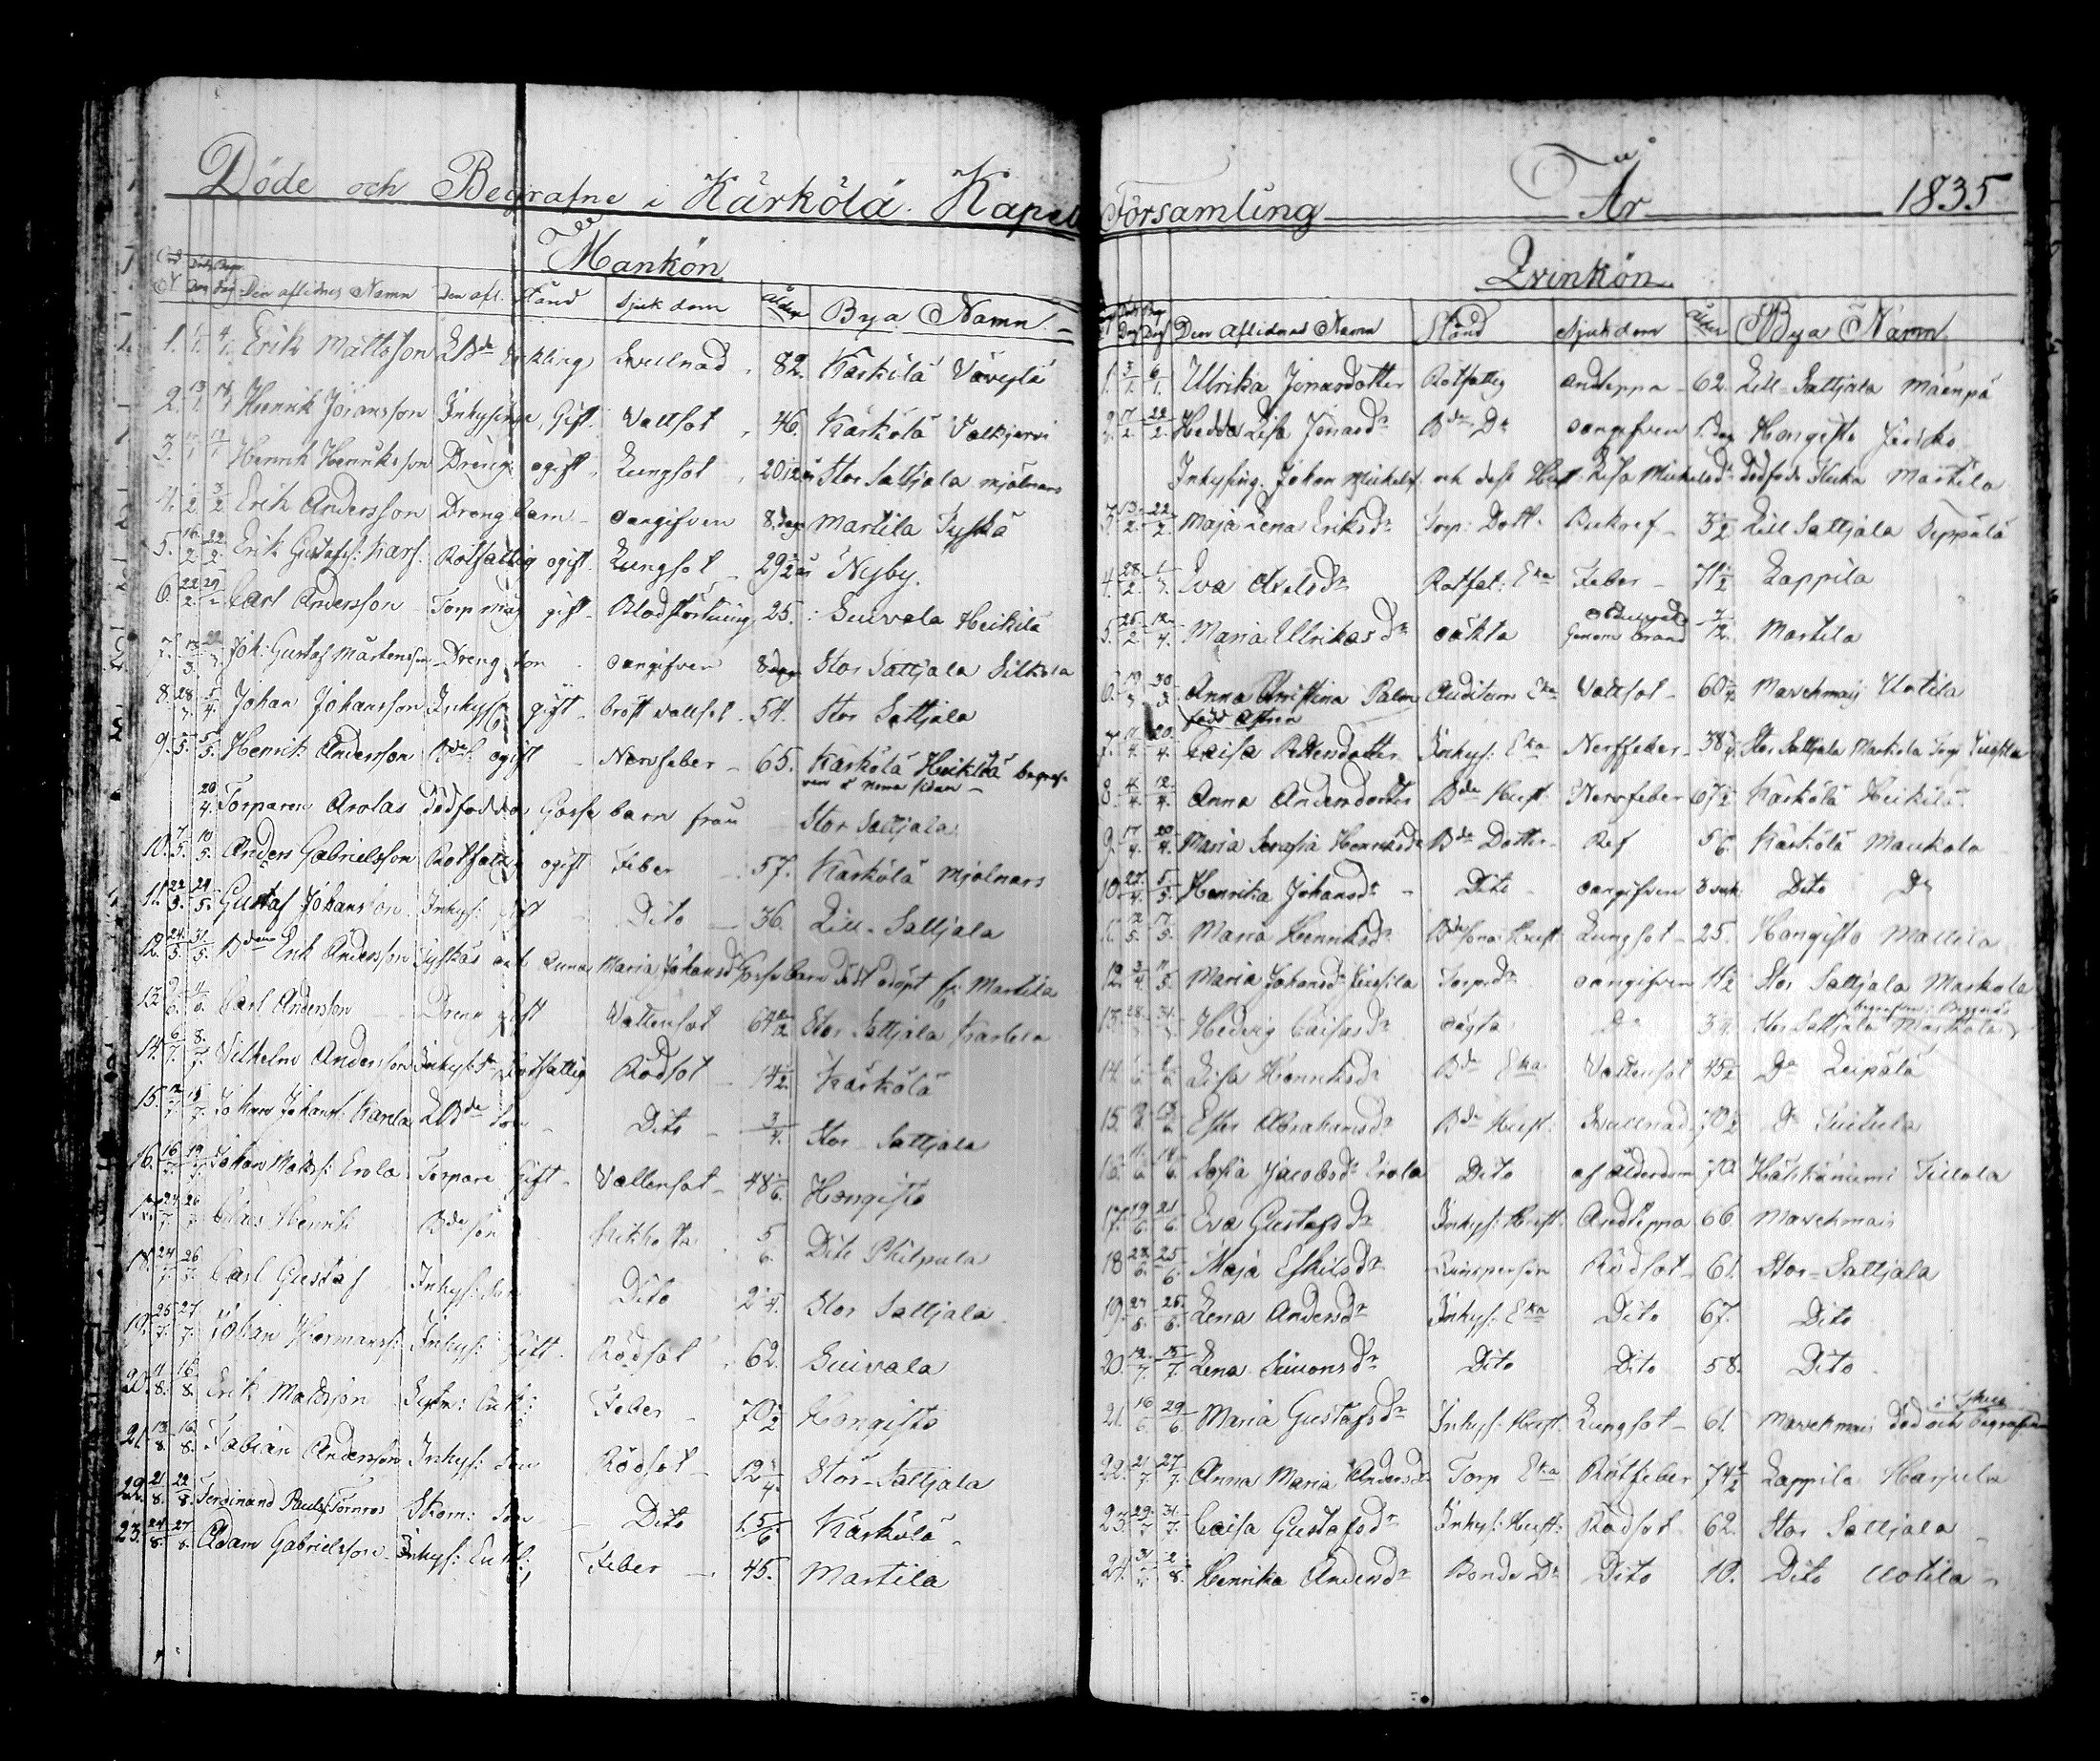 Döde och Begrafne i Kärkölä Kapell
Mankön
N Den aflidnes Namn Den afl. stånd Sjukdom Ålder Bya Namn
1. Erik Mattsson Enkling Svulnad 82. Kärkölä
2. Henrik Johansson Inhysing, Gift. Vattsot 46. Kärkölä Valkjervi
3. Henrik Henriksson Dreng ogift Lungsot 20 1/2 år Stor Sattjala mjölnars
4. 1/2 3/2 Erik Andersson Dreng barn oangifven 8 dag Martila Tyskä
5. 16/2 22/2 Erik Gustafs: Karf. Rotfattig ogift. Lungsot 29 1/2 år Nyby.
6. 22/2 29/2 Carl Andersson Torp måg gift Blodstörtning 25. Suivala Heikilä
7. Joh: Gustaf Mårtensson Dreng son oangifven 8 dagar Stor Sattjala Silkola
8. 28/3 5/4 Johan Johansson Inhyss gift bröst vattsot 54. Stor Sattjala
9. Henrik Andersson ogift Nervfeber 65. Kärkölä Heikilä begrafven
20/4 Torparen Arolas dödfödda Gosse barn från Stor Sattjala
10. 7/5 10/5 Anders Gabrielsson Rotfattig ogift Feber 57. Kärkölä mjölnars
11. 22/5 24/5 Gustaf Johansson Inhys: gift Dito 36. Lill-Sattjala
12. 24/5 31/5 Bdens Erik Andersson Tyskäs och hustrus Maria Johansd: Gossebarn dödt odöpt fr: Martila
13. Carl Andersson Dreng gift Vattensot 64 Stor-Sattjala
14. 6/7 8/7 Vilhelm Andersson Inhys: Rotfattig Rödsot 14 1/2 Kärkölä
15. 12/7 Johan Johans: son Dito 3/4. Stor Sattjala
16. 16/7 19/7 Johan Matts: Erola Torpare Gift Vattensot 48 1/6. Hongisto
17. 24/7 26/7 Henrik Bde son Kikhosta 5/6. Dito Philpula
18. 24/7 26/7 Carl Gustaf Inhys: son Dito 2 1/4. Stor Sattjala
19. 25/7 27/7 Johan Hermans: Inhys: Gift Rödsot 62. Suivala
20. 11/8 16/8 Erik Mattsson Feber 70 1/2 Hongisto
21. 13/8 16/8 Fabian Andersson Inhys: son Rödsot 12 1/4. Stor-Sattjala
22. 21/8 22/8 Ferdinand Pauls: Törnros Skom: son Dito 1. 5/6 Kärkölä
23. 24/8 27/8 Adam Gabrielsson Inhys: Enkl: Feber 45. Martila
Församling År 1835
Qvinkön
Den Aflidnes Namn Stånd Sjukdom Ålder Bya Namn
1. 3/1. 6/1. Ulrika Jonasdotter Rotfattig Andteppa 62. Lill-Sattjala Mäenpä
2. 17/2 22/2 Hedda Lisa Jonasdr Bde Dr oangifven 1. dag Hongisto
Inhysing. Johan Mickels: och dess Hust: Lisa Mickelsdr dödfödda flicka Martila
3. 22/2 Maja Lena Eriksdr Torp: Dott: Bukref 3 1/2 Lill Sattjala Seppälä
4. 28/2 1/3 Eva Axelsdr Rotfat: Eka Feber 71 1/2 Lappila
5. 25/2 12/4 Maria Ulrikasdr oäkta Genom brand Martila
6. 30/3 Anna Christina Palm Auditem Eka Vattsot 60 Marckmais Untila
född Astren
7. 20/4 Caisa Pettersdotter Inhys: Eka Nerffeber 38 Stor Sattjala Markola Torp
8. 4/4 12/4 Anna Andersdotter Bde Hust: Nervfeber 67 1/2 Kärkölä Heikilä
9. 17/4 20/4 Maria Serafia Henriksdr Bde Dotter Ref 5/6. Kärkölä Maukola
10. 27/4 5/5 Henrika Johansdr Dito oangifven 3 vek Dito Do
11. 12/5 17/5 Maria Henriksdr Bdesona Hust Lungsot 25. Hongisto Mattila
12. Maria Johansdr Torpdr oangifven 1 1/2 Stor Sattjala Markola
13. 28 31 Hedvig Caisasdr oägta Do 3/4 Stor Sattjala Markola
14. Lisa Henriksdr Bde Eka Vattensot 45 1/2 Do Leipälä
15. Ester Abrahamsdr Bde Hust: Svullnad 70 1/2 Do Tuitula
16. 11/6 14/6 Sofia Jacobsdr Erola Dito af ålderdom 70 Hähkäniemi Tillola
17. 19/6 21/6 Eva Gustafsdr Inhys: Hust Andteppa 66 Marckmais
18 25/6 Maja Eskilsdr Rödsot 61. Stor-Sattjala
19. Lena Andersdr Inhys: Eka Dito 67. Dito
20. 12/7 15/7 Lena Simonsdr Dito Dito 58. Dito
21. 16/6 29/6 Maria Gustafsdr Inhys: Hust. Lungsot 61. Marckmais död och begrafven
22. 21/7 27/7 Anna Maria Andersdr Torp Eka Rötfeber 74 1/2 Lappila Harjula
23. 29/7 31/7 Caisa Gustafsdr Inhys: Hust: Rödsot 62. Stor Sattjala
24. 31/7 2/8. Henrika Andersdr Bonde Dr Dito 10. Dito Uotila